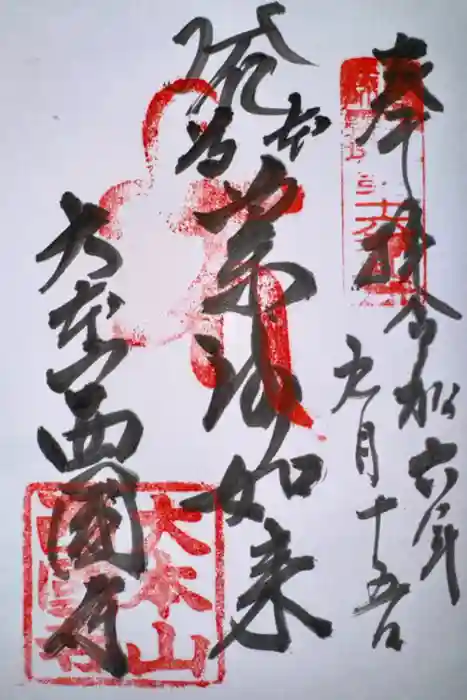 奉拝 令和六年
九月十五日
本
薬師如来
大本山西國寺
大本山
西國寺